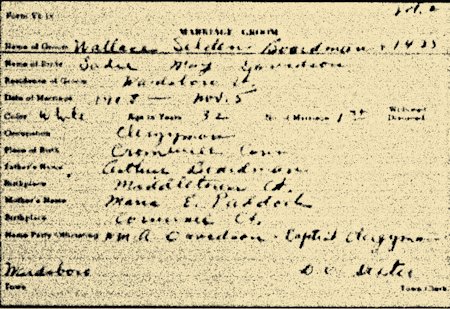 Form VS 18
MARRIAGE GROOM
Name of Groom Wallace Selden Boardman
Name of Bride Sadie May Davidson
Residence of Groom Wardsboro Vt.
Date of Marriage 1908 — Nov. 5
Color White Age in Years 32 No. of Marriage 1st Widowed Divorced
Occupation Clergyman
Place of Birth Cromwell Conn
Father's Name Arthur Boardman
Birthplace Middletown Ct.
Mother's Name E. Paddock
Birthplace Ct.
Name Party Officiating Wm A. Davidson - Baptist Clergyman
Wardsboro D. C.
Town Town Clerk